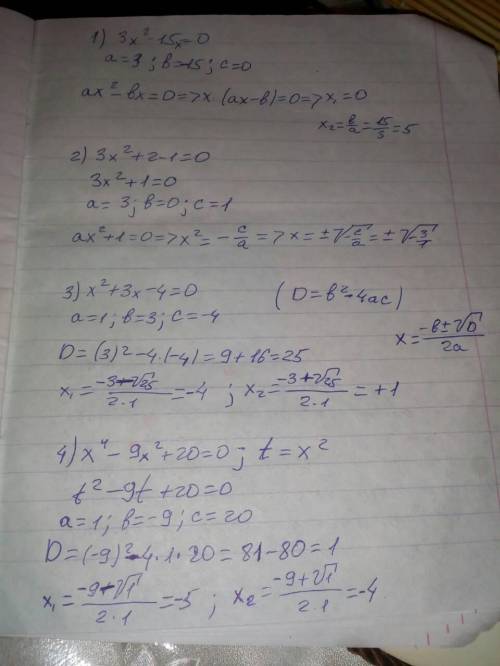 1) 3x²-15x=0
a=3; b=-15; c=0
ax²-bx=0=>x·(ax-b)=0=>x₁=0
x₂=b/a=15/3=5
2) 3x²+2-1=0
3x²+1=0
a=3; b=0; c=1
ax²+1=0=>x²=-c/a=>x=±√-c/a=±√-3/1
3) x²+3x-4=0 (D=b²-4ac)
a=1; b=3; c=-4 x=-b±√D/2a
D=(3)²-4·(-4)=9+16=25
x₁=-3-√25/2·1=-4 ; x₂=-3+√25/2·1=+1
4) x⁴-9x²+20=0; t=x²
t²-9t+20=0
a=1; b=-9; c=20
D=(-9)²-4·1·20=81-80=1
x₁=-9-√1/2·1=-5 ; x₂=-9+√1/2·1=-4